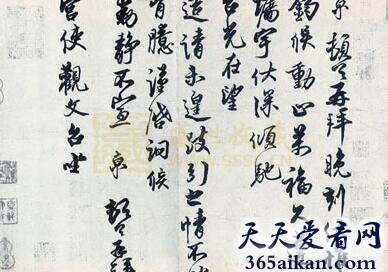 京頓首再拜晚刻伏惟
鈞候動止萬福久
牆宇伏深傾馳
台光在望
造請未遑跂引之情不
胷臆謹啓詞候
動靜不宣 京 頓首再拜
宮使觀文台坐
天天爱看网
365aikan.com